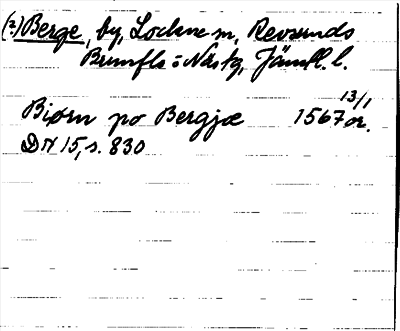 (?) Berge, by, Lockne sn, Revsunds
Brunflo o Näs tg, Jämtl. l.
13/1
Biørn po Bergjæ 1567 or.
DN 15, s. 830